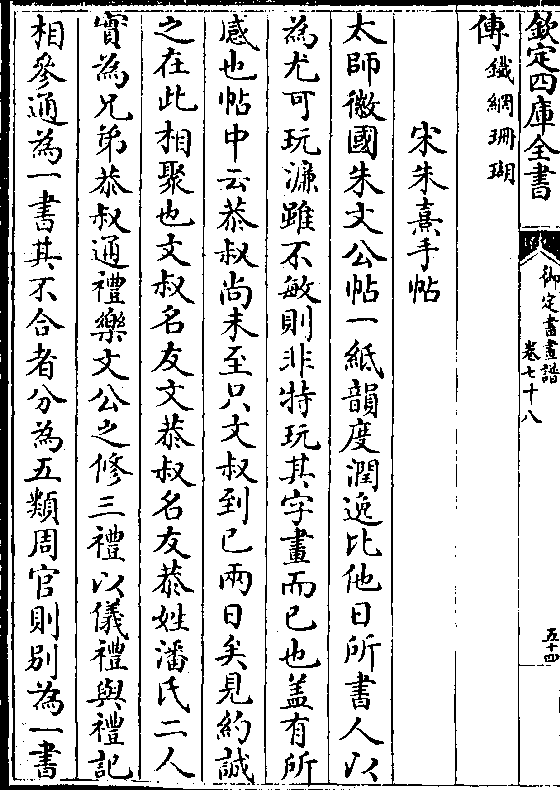 欽定四庫全書
御定書畫譜
卷七十八
五十四
傳鐵網珊瑚
宋朱熹手帖
太師徽國朱文公帖一紙韻度潤逸比他日所書人以
為尤可玩濂雖不敏則非特玩其字畫而已也蓋有所
感也帖中云恭叔尚未至只文叔到已兩日矣見約誠
之在此相聚也文叔名友文恭叔名友恭姓潘氏二人
實為兄弟恭叔通禮樂文公之修三禮以儀禮與禮記
相參通為一書其不合者分為五類周官則別為一書